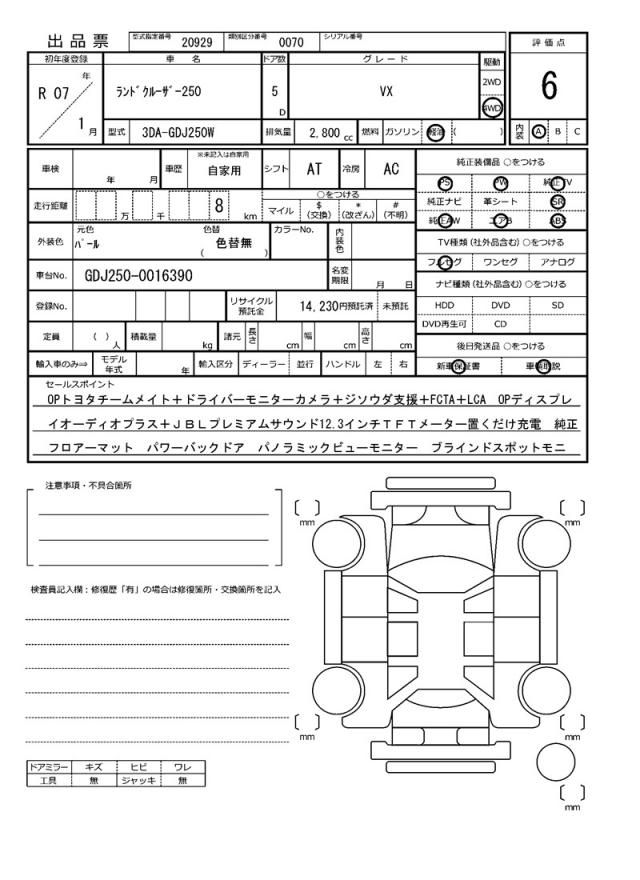 出品票
型式指定番号 20929 類別区分番号 0070 シリアル番号
評価点
6
内装 A B C
初年度登録 車名 ドア数 グレード 駆動
R 07 年 1 月
ランドクルーザー250
5 D
VX
2WD
4WD
型式 3DA-GDJ250W 排気量 2,800 cc 燃料 ガソリン 軽油 ( )
車検 年 月 車歴 ※未記入は自家用 自家用 シフト AT 冷房 AC
走行距離 万 千 8 km
○をつける
マイル $(交換) *(改ざん) #(不明)
外装色 元色 パール 色替 色替無 ( ) カラーNo. 内装色
車台No. GDJ250-0016390 名変期限 月 日
登録No. リサイクル預託金 14,230円預託済 未預託
定員 ( )人 積載量 kg 諸元 長さ cm 幅 cm 高さ cm
輸入車のみ⇒ モデル年式 年 輸入区分 ディーラー 並行 ハンドル 左 右
純正装備品 ○をつける
PS PW 純正TV
純正ナビ 革シート SR
純正AW エアB ABS
TV種類(社外品含む)○をつける
フルセグ ワンセグ アナログ
ナビ種類(社外品含む)○をつける
HDD DVD SD
DVD再生可 CD
後日発送品 ○をつける
新車保証書 車輌取説
セールスポイント
OPトヨタチームメイト＋ドライバーモニターカメラ＋ジソウダ支援+FCTA+LCA OPディスプレ
イオーディオプラス＋ＪＢＬプレミアムサウンド12.3インチＴＦＴメーター置くだけ充電 純正
フロアーマット パワーバックドア パノラミックビューモニター ブラインドスポットモニ
注意事項・不具合箇所
検査員記入欄：修復歴「有」の場合は修復箇所・交換箇所を記入
mm mm
mm mm
mm
ドアミラー キズ ヒビ ワレ
工具 無 ジャッキ 無